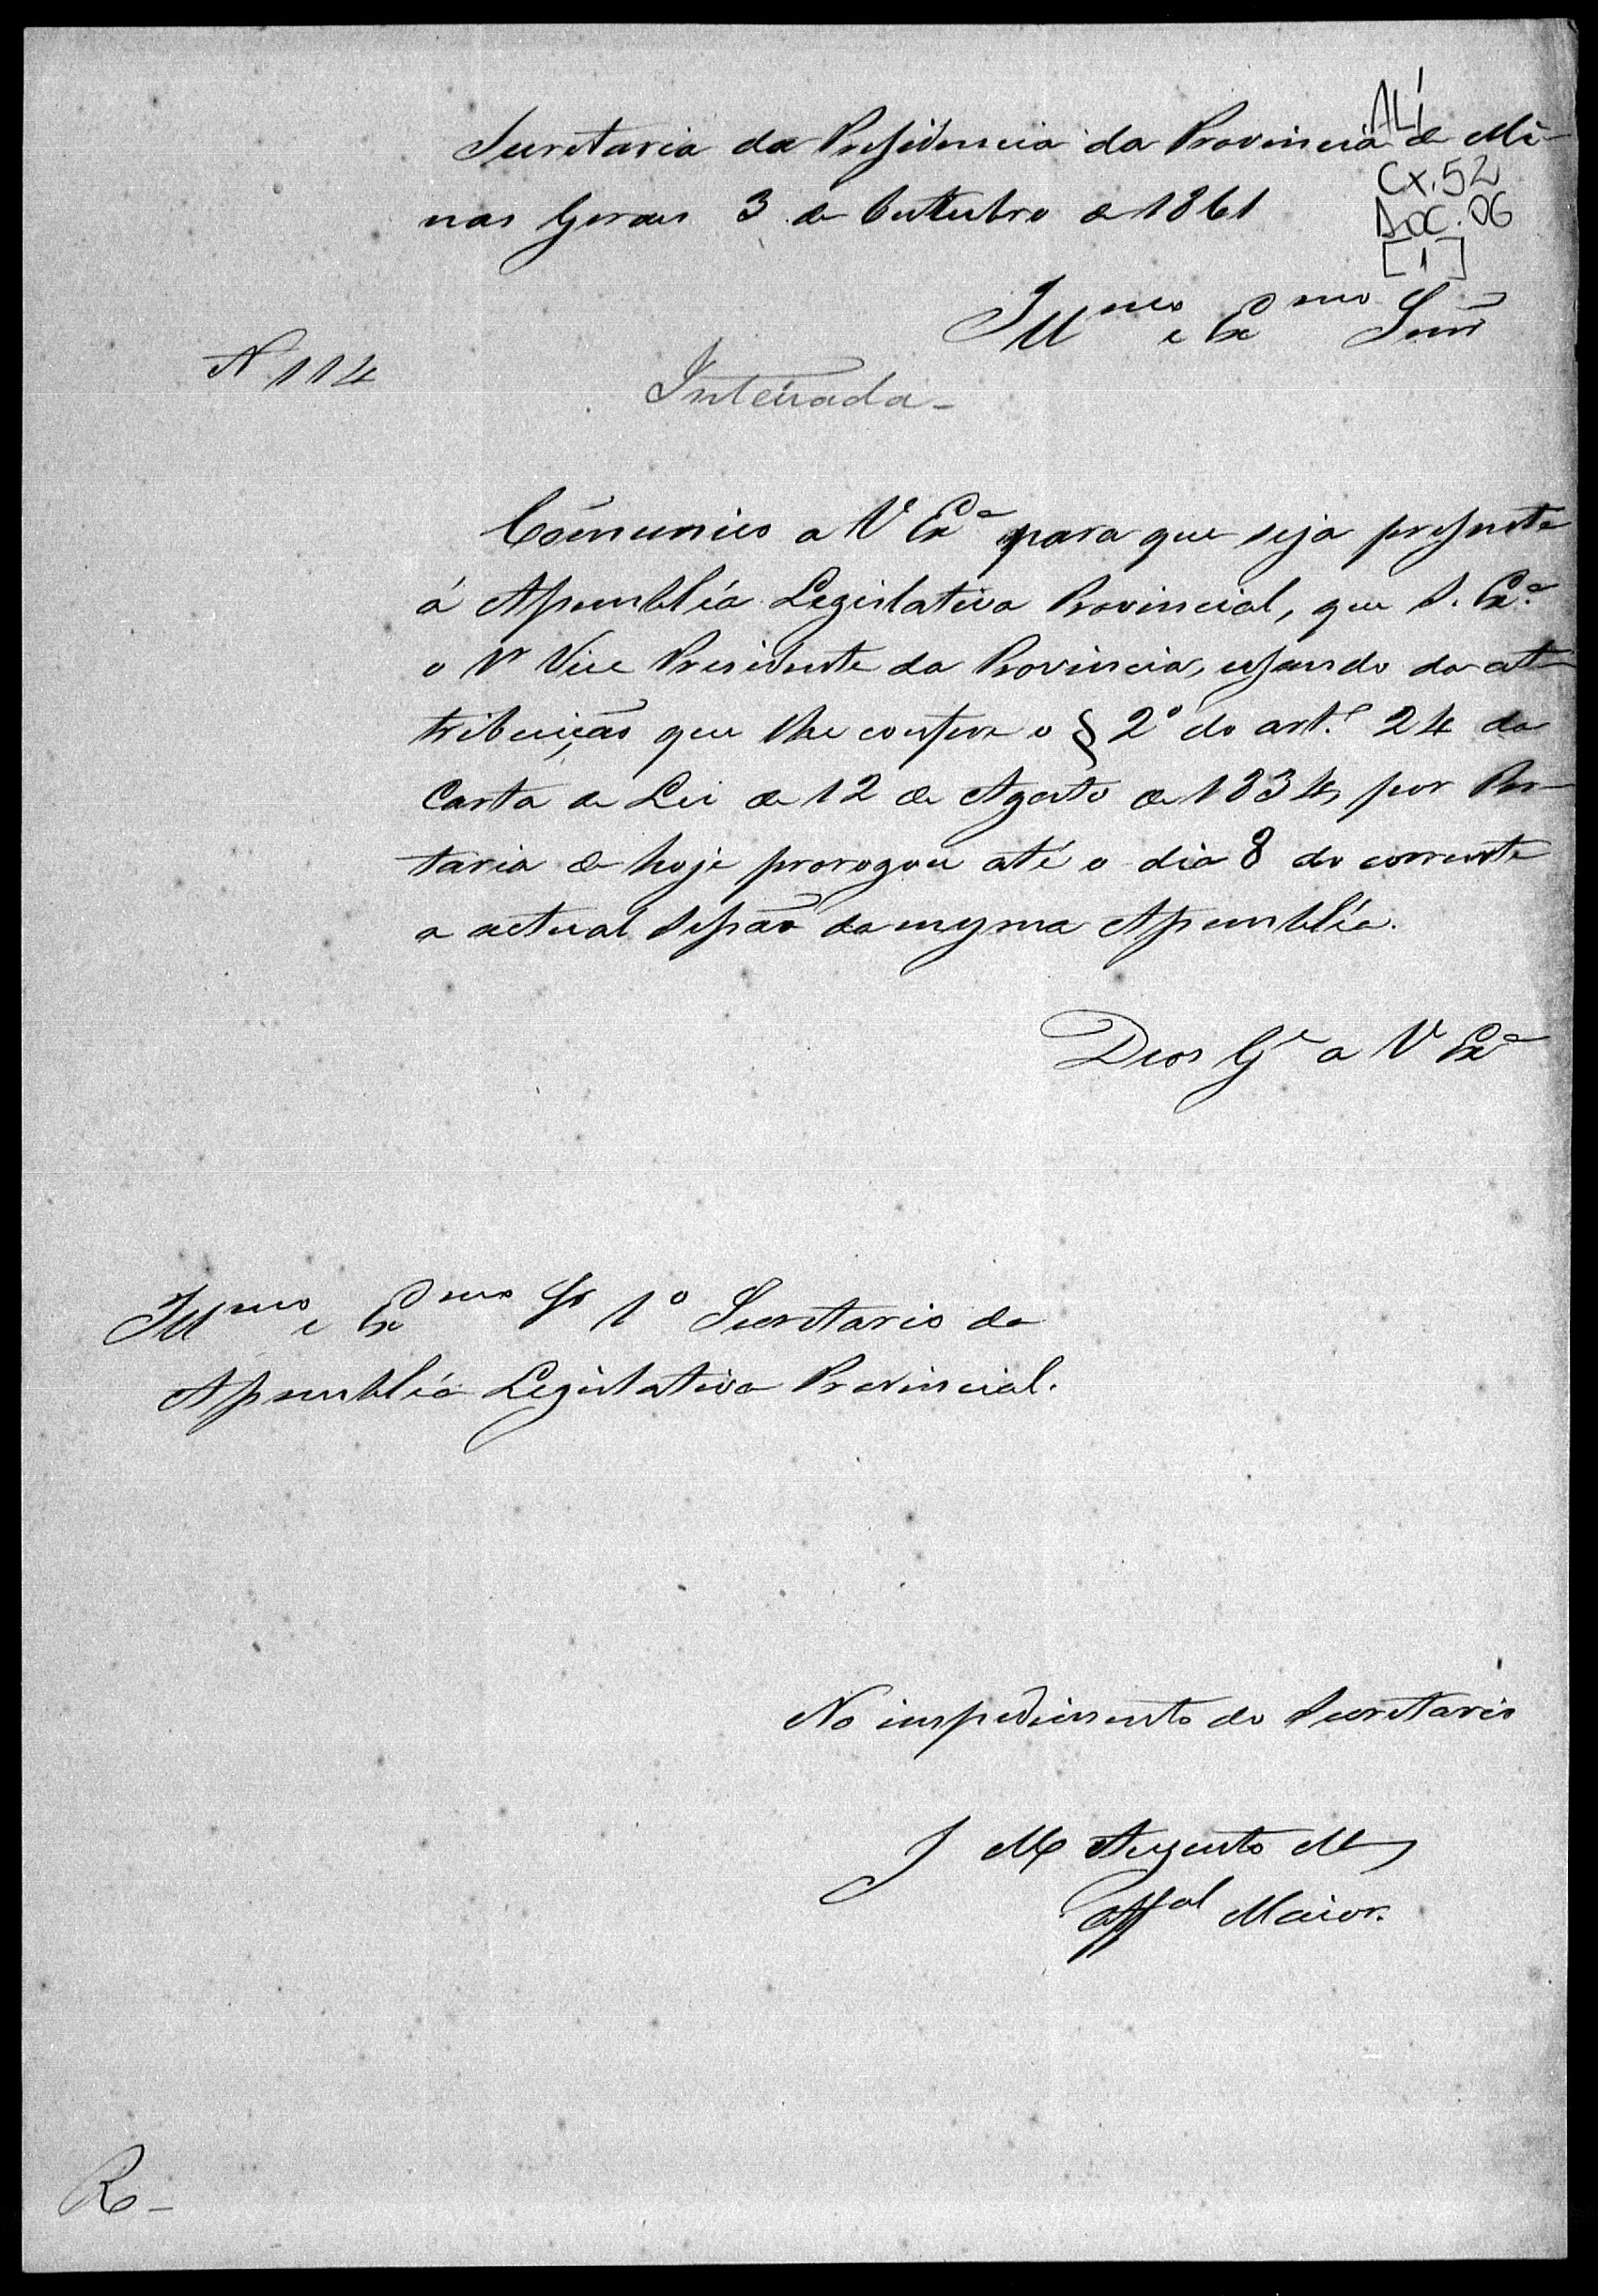 AL1
Secretaria da Presidencia da Provincia de Mi-
Cx. 52
nas Geraes 3 de Outubro de 1861
Doc. 06
[1]
Illmo e Exmo Senr
N 114
Inteirada-
Communico a V Exa para que seja presente
á Assembléa Legislativa Provincial, que S. Exa
o Vice Presidente da Provincia, usando da at-
tribuição que lhe confere o § 2º do art. 24 da
Carta de Lei de 12 de Agosto de 1834, por Por-
taria de hoje prorogou até o dia 8 do corrente
a actual Sessão da mesma Assembléa.
Deos Ge a V Exa
Illmo e Exmo Sr 1º Secretario da
Assembléa Legislativa Provincial.
No impedimento do Secretario
J M Augusto
Offal Maior.
R-